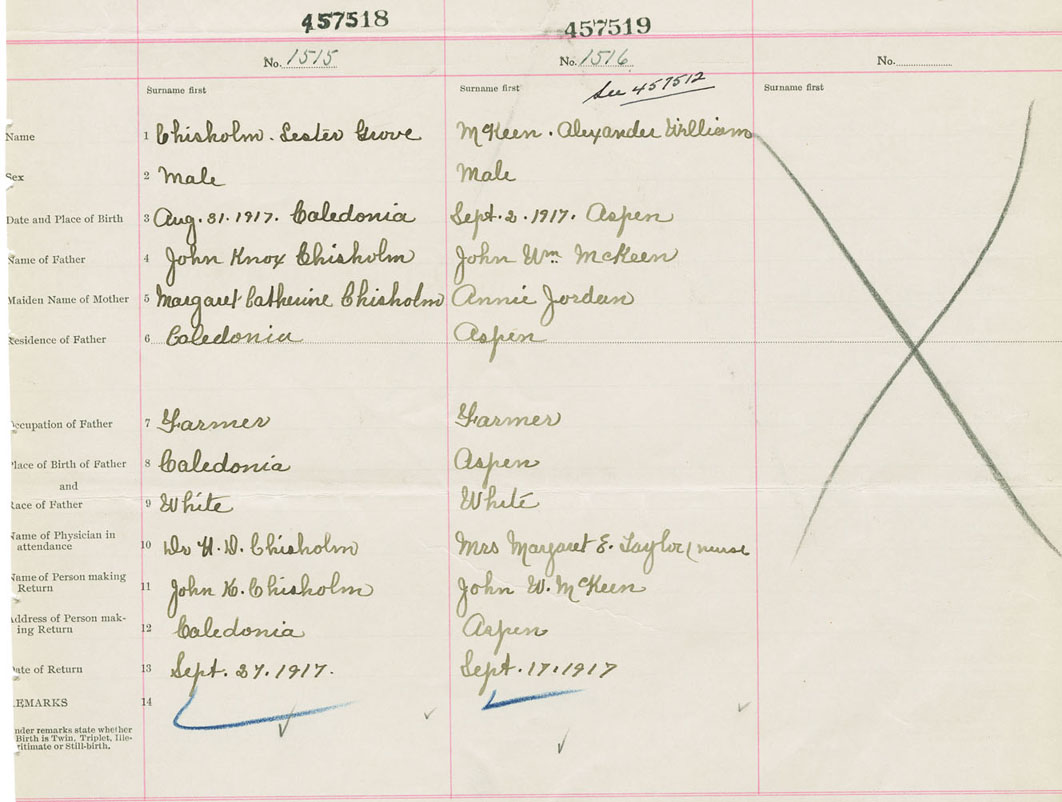 457518 457519
No. 1515 No. 1516 No.
Surname first Surname first Surname first
See 457512
Name 1 Chisholm. Lester Grove McKeen. Alexander William
Sex 2 Male Male
Date and Place of Birth 3 Aug. 31. 1917. Caledonia Sept. 2. 1917. Aspen
Name of Father 4 John Knox Chisholm John Wm McKeen
Maiden Name of Mother 5 Margaret Catherine Chisholm Annie Jordan
Residence of Father 6 Caledonia Aspen
Occupation of Father 7 Farmer Farmer
Place of Birth of Father 8 Caledonia Aspen
and
Race of Father 9 White White
Name of Physician in
attendance 10 Dr H. D. Chisholm Mrs Margaret E. Taylor (nurse
Name of Person making
Return 11 John K. Chisholm John W. McKeen
Address of Person mak-
ing Return 12 Caledonia Aspen
Date of Return 13 Sept. 27. 1917. Sept. 17. 1917
REMARKS 14
Under remarks state whether
Birth is Twin, Triplet, Ille-
gitimate or Still-birth.